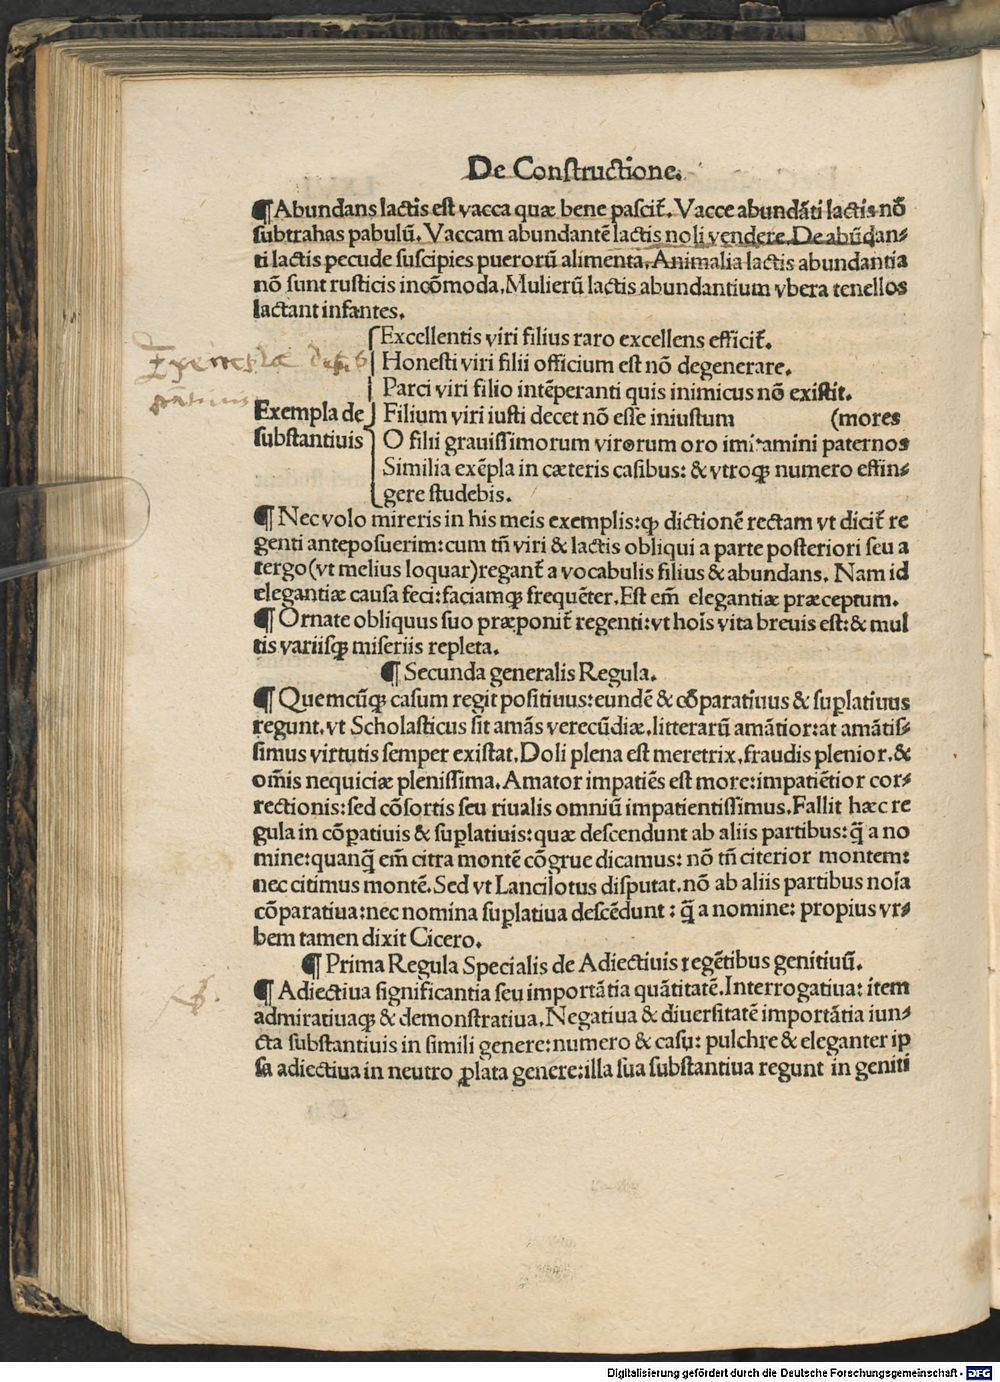 De Constructione.
¶ Abundans lactis est vacca quæ bene pascit᷑. Vacce abundãti lactis nõ
subtrahas pabulũ. Vaccam abundantẽ lactis noli vendere. De abũdan⸗
ti lactis pecude suscipies puerorũ alimenta. Animalia lactis abundantia
nõ sunt rusticis incõmoda. Mulierũ lactis abundantium vbera tenellos
lactant infantes.
Excellentis viri filius raro excellens efficit᷑.
Honesti viri filii officium est nõ degenerare.
Parci viri filio intẽperanti quis inimicus nõ existit.
Exempla de
substantiuis
Filium viri iusti decet nõ esse iniustum (mores
O filii grauissimorum virorum oro imitamini paternos
Similia exẽpla in cæteris casibus: & vtroqꝫ numero effin⸗
gere studebis.
¶ Nec volo mireris in his meis exemplis: ꝙ dictionẽ rectam vt dicit᷑ re
genti anteposuerim: cum tñ viri & lactis obliqui a parte posteriori seu a
tergo (vt melius loquar) regant᷑ a vocabulis filius & abundans. Nam id
elegantiæ causa feci: faciamqꝫ frequẽter. Est em̃ elegantiæ præceptum.
¶ Ornate obliquus suo præponit᷑ regenti: vt hoĩs vita breuis est: & mul
tis variisqꝫ miseriis repleta.
¶ Secunda generalis Regula.
¶ Quemcũqꝫ casum regit positiuus: eundẽ & cõparatiuus & suꝑlatiuus
regunt. vt Scholasticus sit amãs verecũdiæ. litterarũ amãtior: at amãtis⸗
simus virtutis semper existat. Doli plena est meretrix. fraudis plenior. &
om̃is nequiciæ plenissima. Amator impatiẽs est more: impatiẽtior cor⸗
rectionis: sed cõsortis seu riualis omniũ impatientissimus. Fallit hæc re
gula in cõpatiuis & suꝑlatiuis: quæ descendunt ab aliis partibus: q̃ a no
mine: quanq̃ em̃ citra montẽ cõgrue dicamus: nõ tñ citerior montem:
nec citimus montẽ. Sed vt Lancilotus disputat. nõ ab aliis partibus noĩa
cõparatiua: nec nomina suꝑlatiua descẽdunt: q̃ a nomine: propius vr⸗
bem tamen dixit Cicero.
¶ Prima Regula Specialis de Adiectiuis regẽtibus genitiuũ.
¶ Adiectiua significantia seu importãtia quãtitatẽ. Interrogatiua: item
admiratiuaqꝫ & demonstratiua. Negatiua & diuersitatẽ importãtia iun⸗
cta substantiuis in simili genere: numero & casu: pulchre & eleganter ip
sa adiectiua in neutro ꝓlata genere: illa sua substantiua regunt in geniti
Digitalisierung gefördert durch die Deutsche Forschungsgemeinschaft - DFG